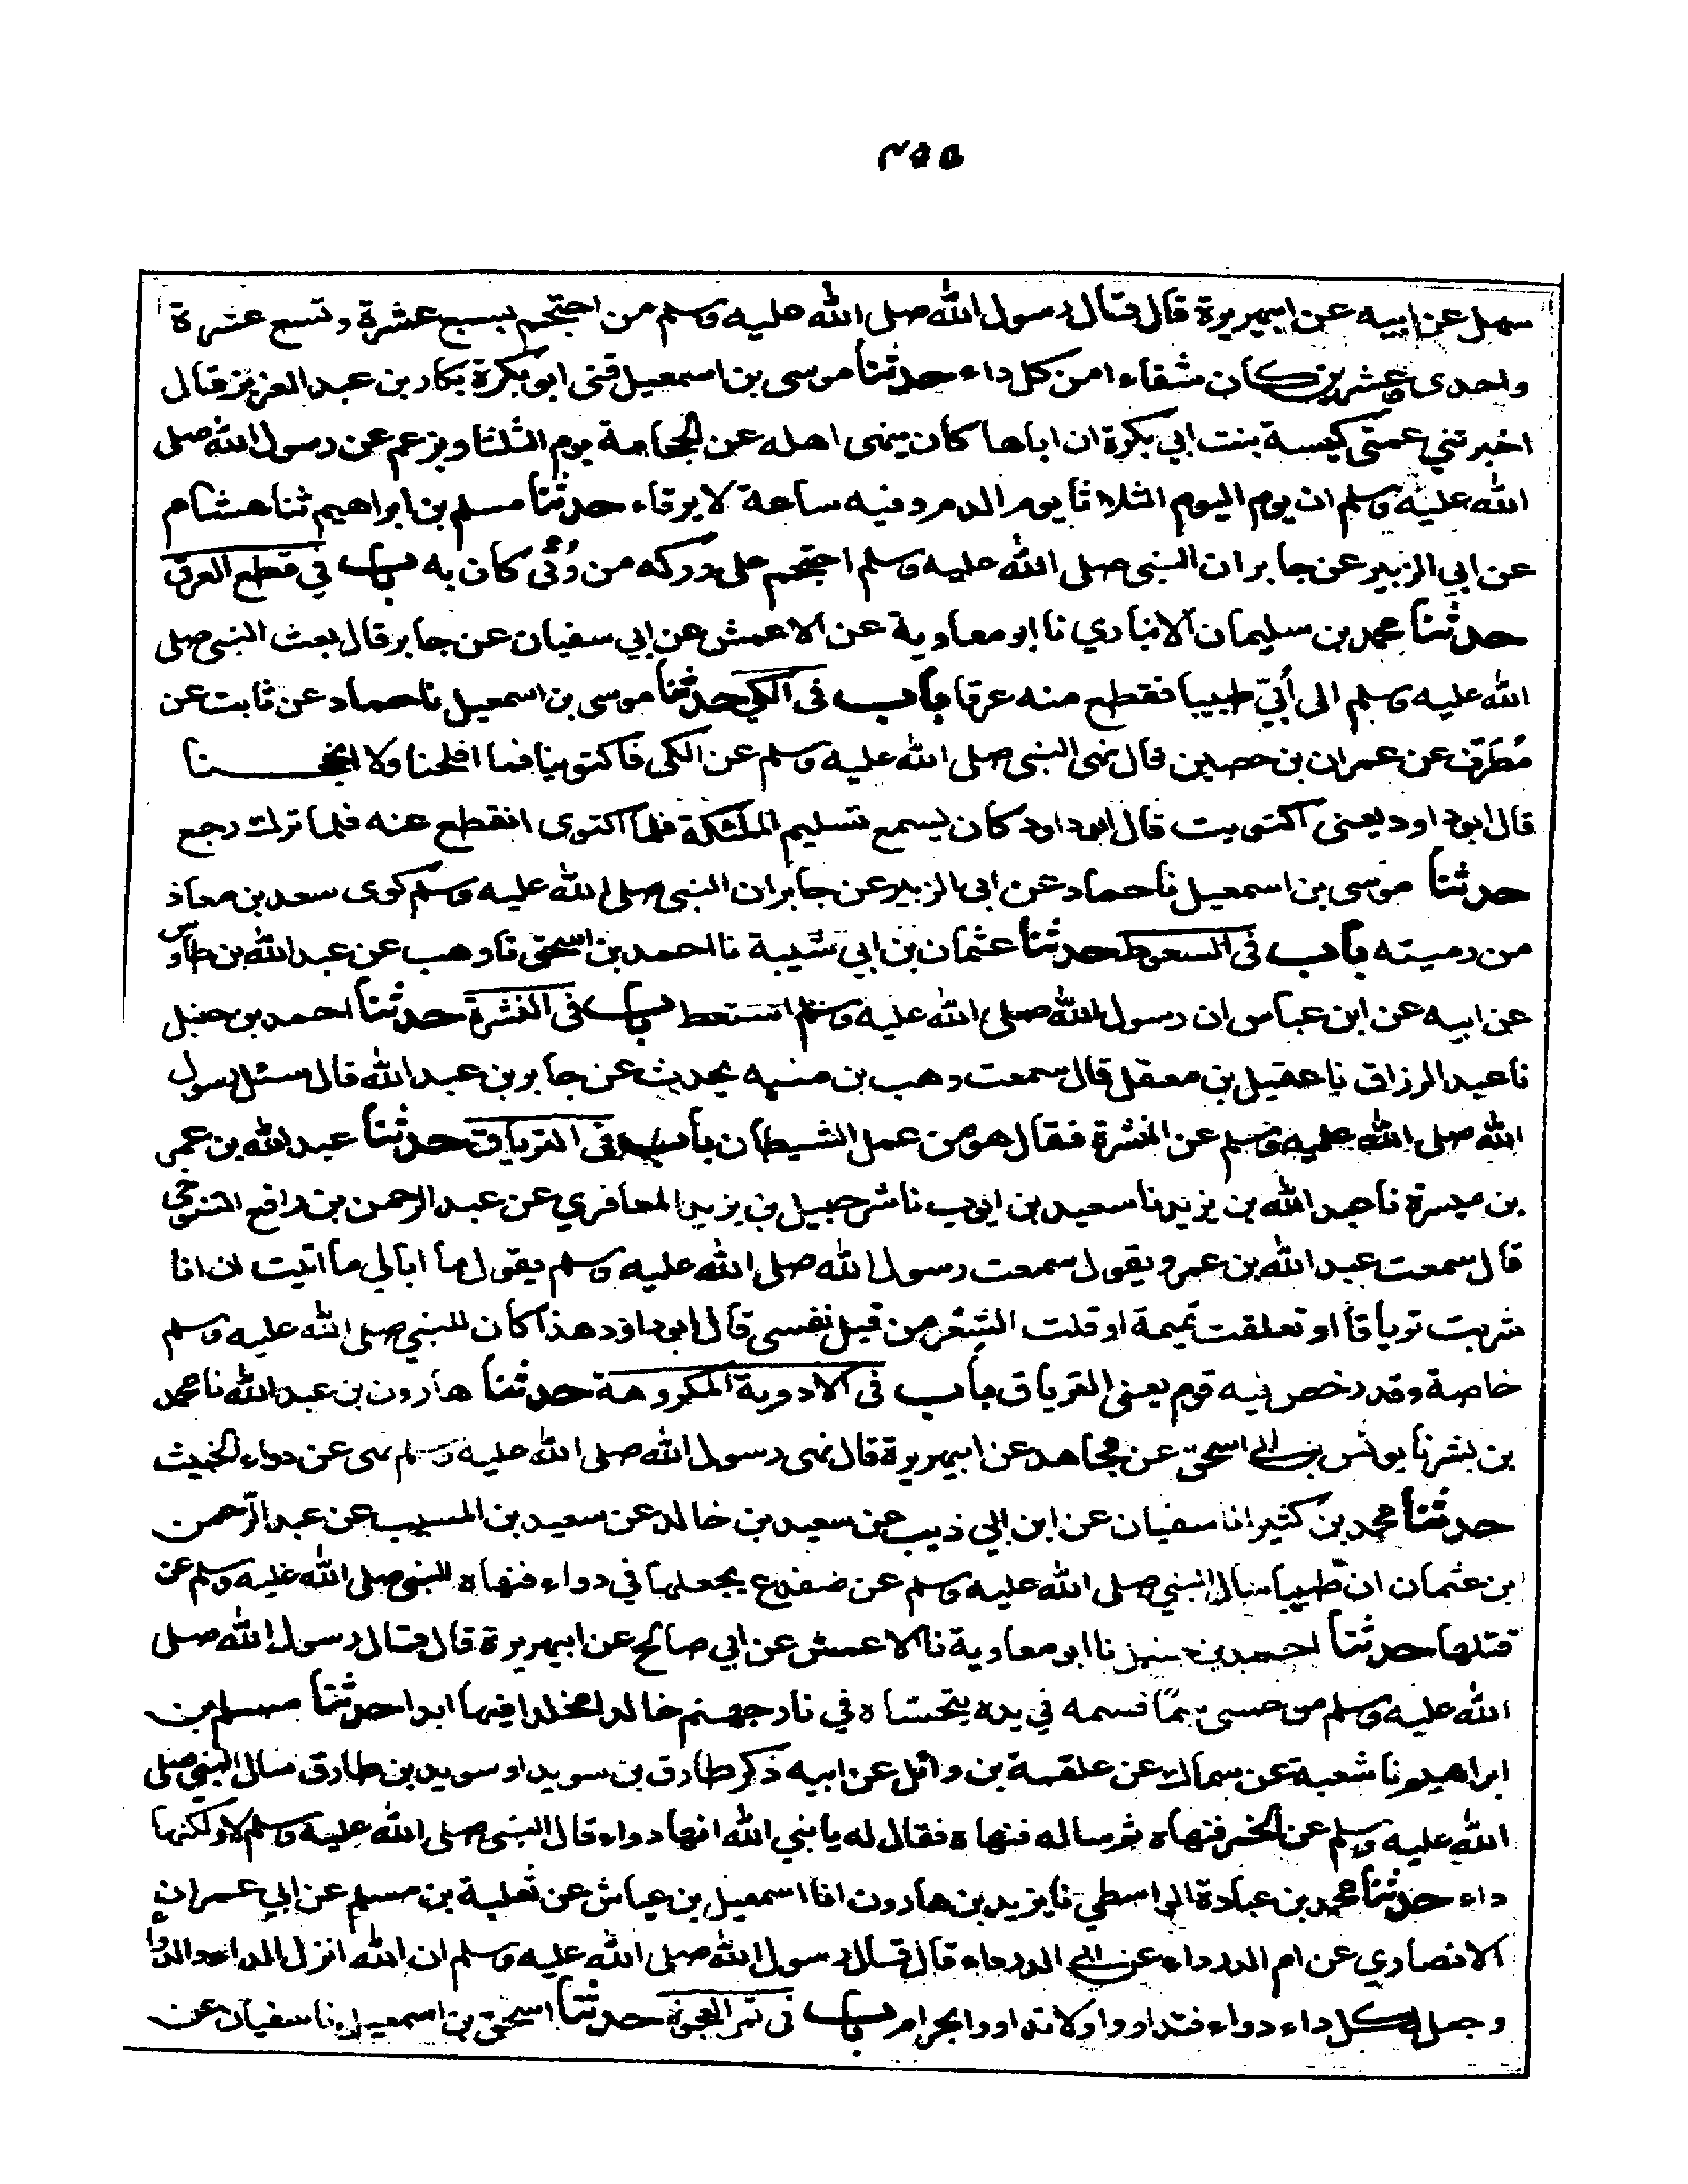 ٢٥٥
سهل عن ابيه عن ابيهريرة قال قال رسول الله صلى الله عليه وسلم من احتجم بسبع عشرة وتسع عشرة
واحدى وعشرين كان شفاء من كل داء حدثنا موسى بن اسمعيل ثنى ابو بكرة بكار بن عبد العزيز قال
اخبرتني عمتى كيسة بنت ابي بكرة ان اباها كان ينهى اهله عن الحجامة يوم الثلثا ويزعم عن رسول الله صلى
الله عليه وسلم ان يوم اليوم الثلاثا يوم الدم وفيه ساعة لا يرقاء حدثنا مسلم بن ابراهيم ثنا هشام
عن ابي الزبير عن جابر ان النبى صلى الله عليه وسلم احتجم على وركه من وُثْى كان به باب في قطع العرق
حدثنا محمد بن سليمان الانباري نا ابو معاوية عن الاعمش عن ابي سفيان عن جابر قال بعث النبى صلى
الله عليه وسلم الى اُبَيّ طبيبا فقطع منه عرقا باب فى الكي حدثنا موسى بن اسمعيل نا حماد عن ثابت عن
مُطَرّف عن عمران بن حصين قال نهى النبى صلى الله عليه وسلم عن الكى فاكتوينا فما افلحنا ولا انجحنا
قال ابو داود يعنى اكتويت قال ابو داود كان يسمع تسليم الملئكة فلما اكتوى انقطع عنه فلما ترك رجع
حدثنا موسى بن اسمعيل نا حماد عن ابى الزبير عن جابر ان النبى صلى الله عليه وسلم كوى سعد بن معاذ
من رميته باب فى السعوط حدثنا عثمان بن ابي شيبة نا احمد بن اسحق نا وهب عن عبد الله بن طاوس
عن ابيه عن ابن عباس ان رسول الله صلى الله عليه وسلم استعط باب فى النشرة حدثنا احمد بن حنبل
نا عبد الرزاق نا عقيل بن معقل قال سمعت وهب بن منبه يحدث عن جابر بن عبد الله قال سئل رسول
الله صلى الله عليه وسلم عن النشرة فقال هو من عمل الشيطان باب فى الترياق حدثنا عبد الله بن عمر
بن ميسرة نا عبد الله بن يزيد نا سعيد بن ايوب نا شرحبيل بن يزيد المعافري عن عبد الرحمن بن رافع التنوخى
قال سمعت عبد الله بن عمرو يقول سمعت رسول الله صلى الله عليه وسلم يقول ما ابالي ما اتيت ان انا
شربت ترياقا او تعلقت تميمة او قلت الشعر من قبل نفسى قال ابو داؤد هذا كان للنبي صلى الله عليه وسلم
خاصة وقد رخص فيه قوم يعنى الترياق باب فى الادوية المكروهة حدثنا هارون بن عبد الله نا محمد
بن بشر نا يونس بن ابى اسحق عن مجاهد عن ابيهريرة قال نهى رسول الله صلى الله عليه وسلم نهى عن دواء الخبيث
حدثنا محمد بن كثير انا سفيان عن ابن ابي ذيب عن سعيد بن خالد عن سعيد بن المسيب عن عبد الرّحمن
بن عثمان ان طبيبا سال النبي صلى الله عليه وسلم عن ضفدع يجعلها في دواء فنهاه النبى صلى الله عليه وسلم عن
قتلها حدثنا احمد بن حنبل نا ابو معاوية نا الاعمش عن ابي صالح عن ابيهريرة قال قال رسول الله صلى
الله عليه وسلم من حسى سمًا فسمه في يده يتحسّاه في نار جهنم خالدا مخلدا فيها ابدا حدثنا مسلم بن
ابراهيم نا شعبة عن سماك عن علقمة بن وائل عن ابيه ذكر طارق بن سويد او سويد بن طارق سال النبي صلى
الله عليه وسلم عن الخمر فنهاه ثم ساله فنهاه فقال له يا نبي الله انها دواء قال النبى صلى الله عليه وسلم لا ولكنها
داء حدثنا محمد بن عبادة الواسطي نا يزيد بن هارون انا اسمعيل بن عياش عن ثعلبة بن مسلم عن ابي عمران
الانصاري عن ام الدرداء عن ابى الدرداء قال قال رسول الله صلى الله عليه وسلم ان الله انزل الداء والدواء
وجعل لكل داء دواء فتداووا ولا تداووا بحرام باب فى تمر العجوة حدثنا اسحق بن اسمعيل نا سفيان عن